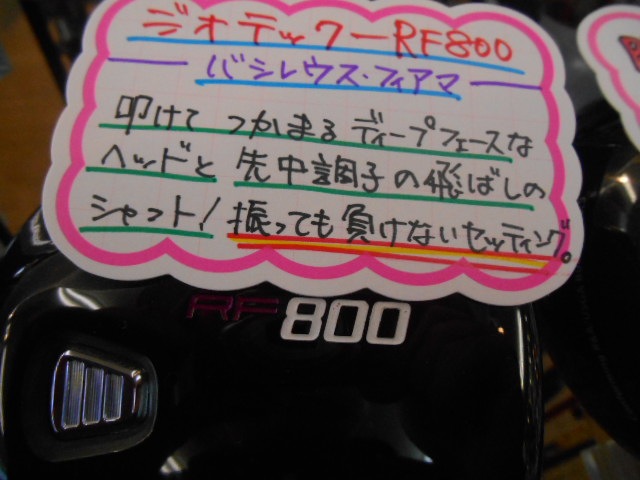 ジオテックーRF800
バシレウス・フィアマ
叩けて つかまるディープフェースな
ヘッドと 先中調子の飛ばしの
シャフト! 振っても負けないセッティング。
RF800